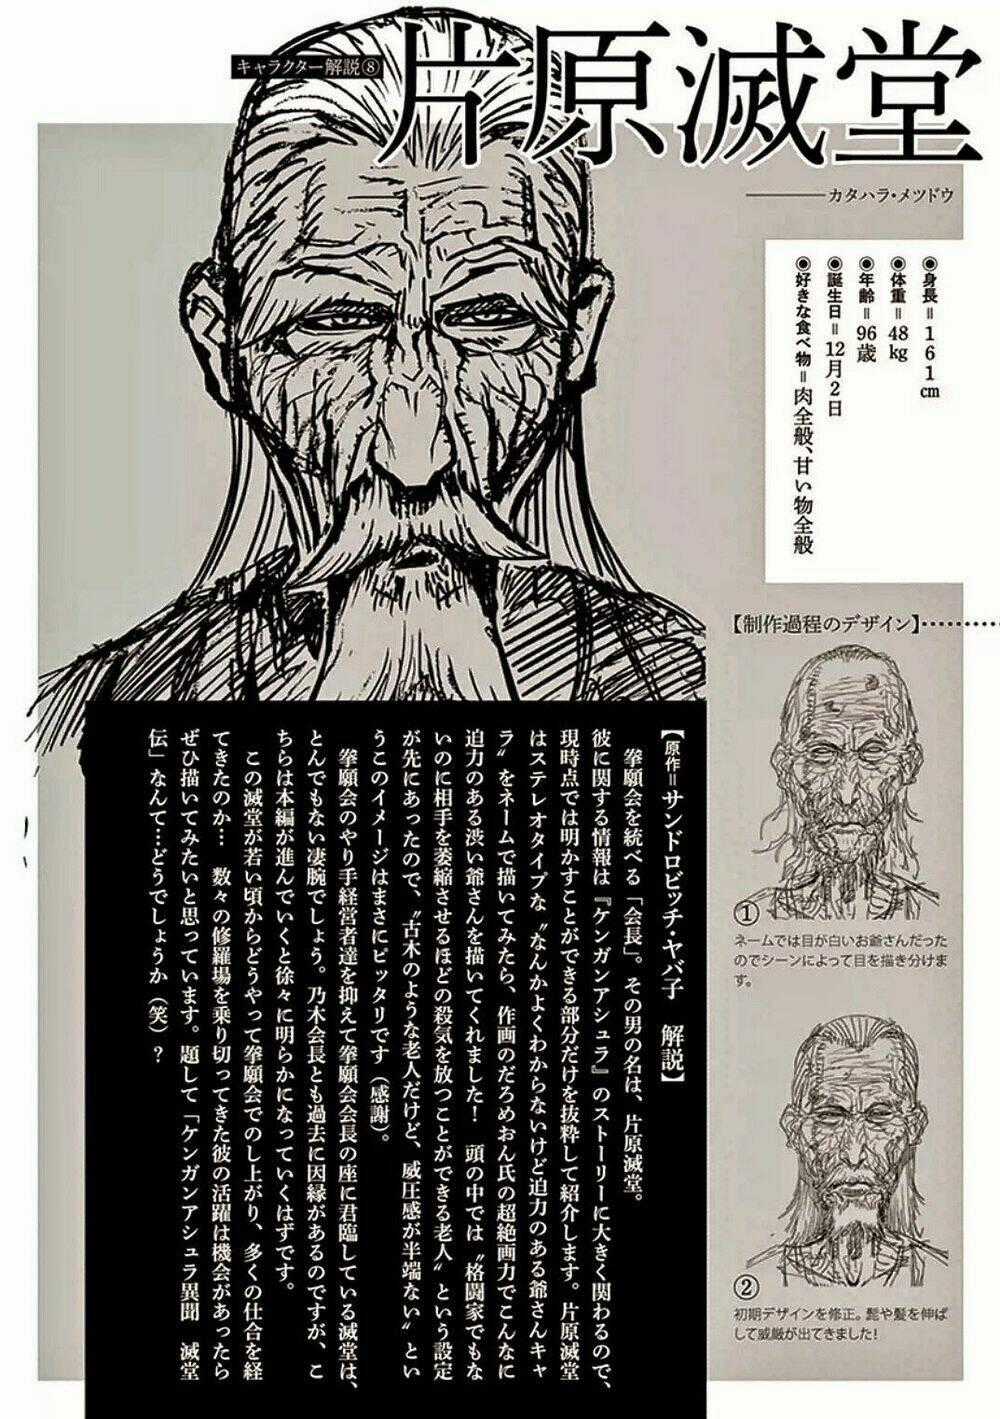 キャラクター解説⑧
片原滅堂
カタハラ・メツドウ
◉身長＝161㎝
◉体重＝48㎏
◉年齢＝96歳
◉誕生日＝12月2日
◉好きな食べ物＝肉全般、甘い物全般
【制作過程のデザイン】
①
ネームでは目が白いお爺さんだった
のでシーンによって目を描き分けま
す。
②
初期デザインを修正。髭や髪を伸ば
して威厳が出てきました!
【原作＝サンドロビッチ・ヤバ子　解説】
拳願会を統べる「会長」。その男の名は、片原滅堂。
彼に関する情報は『ケンガンアシュラ』のストーリーに大きく関わるので、
現時点では明かすことができる部分だけを抜粋して紹介します。片原滅堂
はステレオタイプな〝なんかよくわからないけど迫力のある爺さんキャ
ラ〟をネームで描いてみたら、作画のだろめおん氏の超絶画力でこんなに
迫力のある渋い爺さんを描いてくれました!　頭の中では〝格闘家でもな
いのに相手を萎縮させるほどの殺気を放つことができる老人〟という設定
が先にあったので、〝古木のような老人だけど、威圧感が半端ない〟とい
うこのイメージはまさにピッタリです（感謝）。
拳願会のやり手経営者達を抑えて拳願会会長の座に君臨している滅堂は、
とんでもない凄腕でしょう。乃木会長とも過去に因縁があるのですが、こ
ちらは本編が進んでいくと徐々に明らかになっていくはずです。
この滅堂が若い頃からどうやって拳願会でのし上がり、多くの仕合を経
てきたのか…　数々の修羅場を乗り切ってきた彼の活躍は機会があったら
ぜひ描いてみたいと思っています。題して「ケンガンアシュラ異聞　滅堂
伝」なんて…どうでしょうか（笑）?